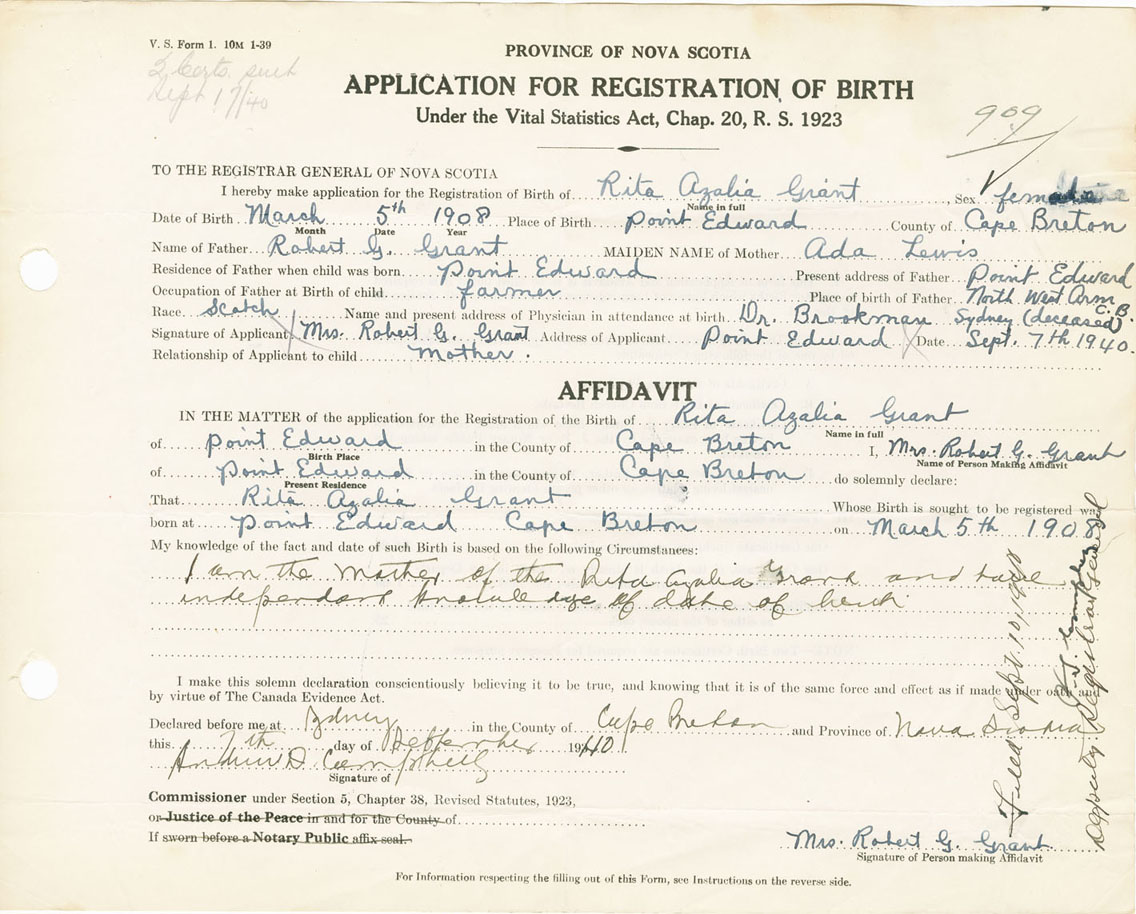 V. S. Form 1. 10M 1-39
2 Certs. sent
Sept 17/40
PROVINCE OF NOVA SCOTIA
APPLICATION FOR REGISTRATION OF BIRTH
Under the Vital Statistics Act, Chap. 20, R. S. 1923
909
TO THE REGISTRAR GENERAL OF NOVA SCOTIA
I hereby make application for the Registration of Birth of Rita Azalia Grant, Sex female
Name in full
Date of Birth March 5th 1908 Place of Birth Point Edward County of Cape Breton
Month Date Year
Name of Father Robert G. Grant MAIDEN NAME of Mother Ada Lewis
Residence of Father when child was born Point Edward Present address of Father Point Edward
Occupation of Father at Birth of child farmer Place of birth of Father North West Arm C. B.
Race Scotch Name and present address of Physician in attendance at birth Dr. Brookman Sydney (deceased)
Signature of Applicant Mrs. Robert G. Grant Address of Applicant Point Edward Date Sept. 7th 1940.
Relationship of Applicant to child Mother.
AFFIDAVIT
IN THE MATTER of the application for the Registration of the Birth of Rita Azalia Grant
Name in full
of Point Edward in the County of Cape Breton I, Mrs. Robert G. Grant
Birth Place Name of Person Making Affidavit
of Point Edward in the County of Cape Breton do solemnly declare:
Present Residence
That Rita Azalia Grant Whose Birth is sought to be registered was
born at Point Edward Cape Breton on March 5th 1908
My knowledge of the fact and date of such Birth is based on the following Circumstances:
I am the Mother of the Rita Azalia Grant and have
independant knowledge of date of birth
I make this solemn declaration conscientiously believing it to be true, and knowing that it is of the same force and effect as if made under oath and
by virtue of The Canada Evidence Act.
Declared before me at Sydney in the County of Cape Breton and Province of Nova Scotia
this 7th day of September 1940
Andrew D. Campbell
Signature of
Commissioner under Section 5, Chapter 38, Revised Statutes, 1923,
or Justice of the Peace in and for the County of
If sworn before a Notary Public affix seal.
Mrs. Robert G. Grant
Signature of Person making Affidavit
For Information respecting the filling out of this Form, see Instructions on the reverse side.
Filed Sept. 10, 1940
Deputy Registrar General